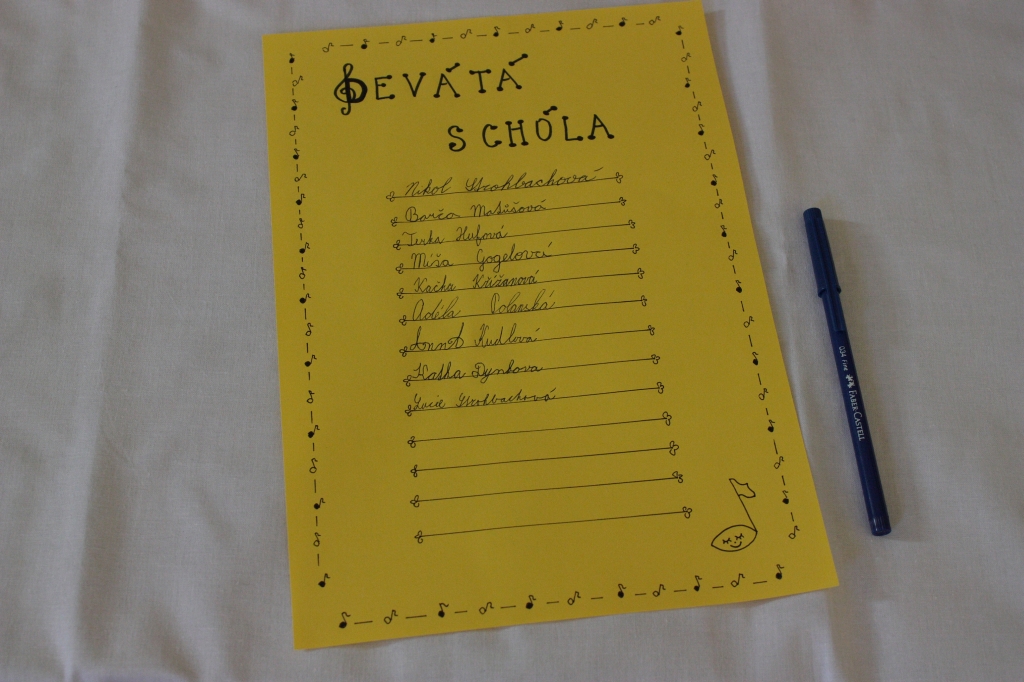 DEVÁTÁ
SCHÓLA
Nikol Strohbachová
Barča Matúšová
Terka Hufová
Míša Gogelová
Kačka Křižanová
Adéla Polanská
AnnA Kudlová
Katka Dynkova
Lucie Strohbachová
034 FINE FABER-CASTELL